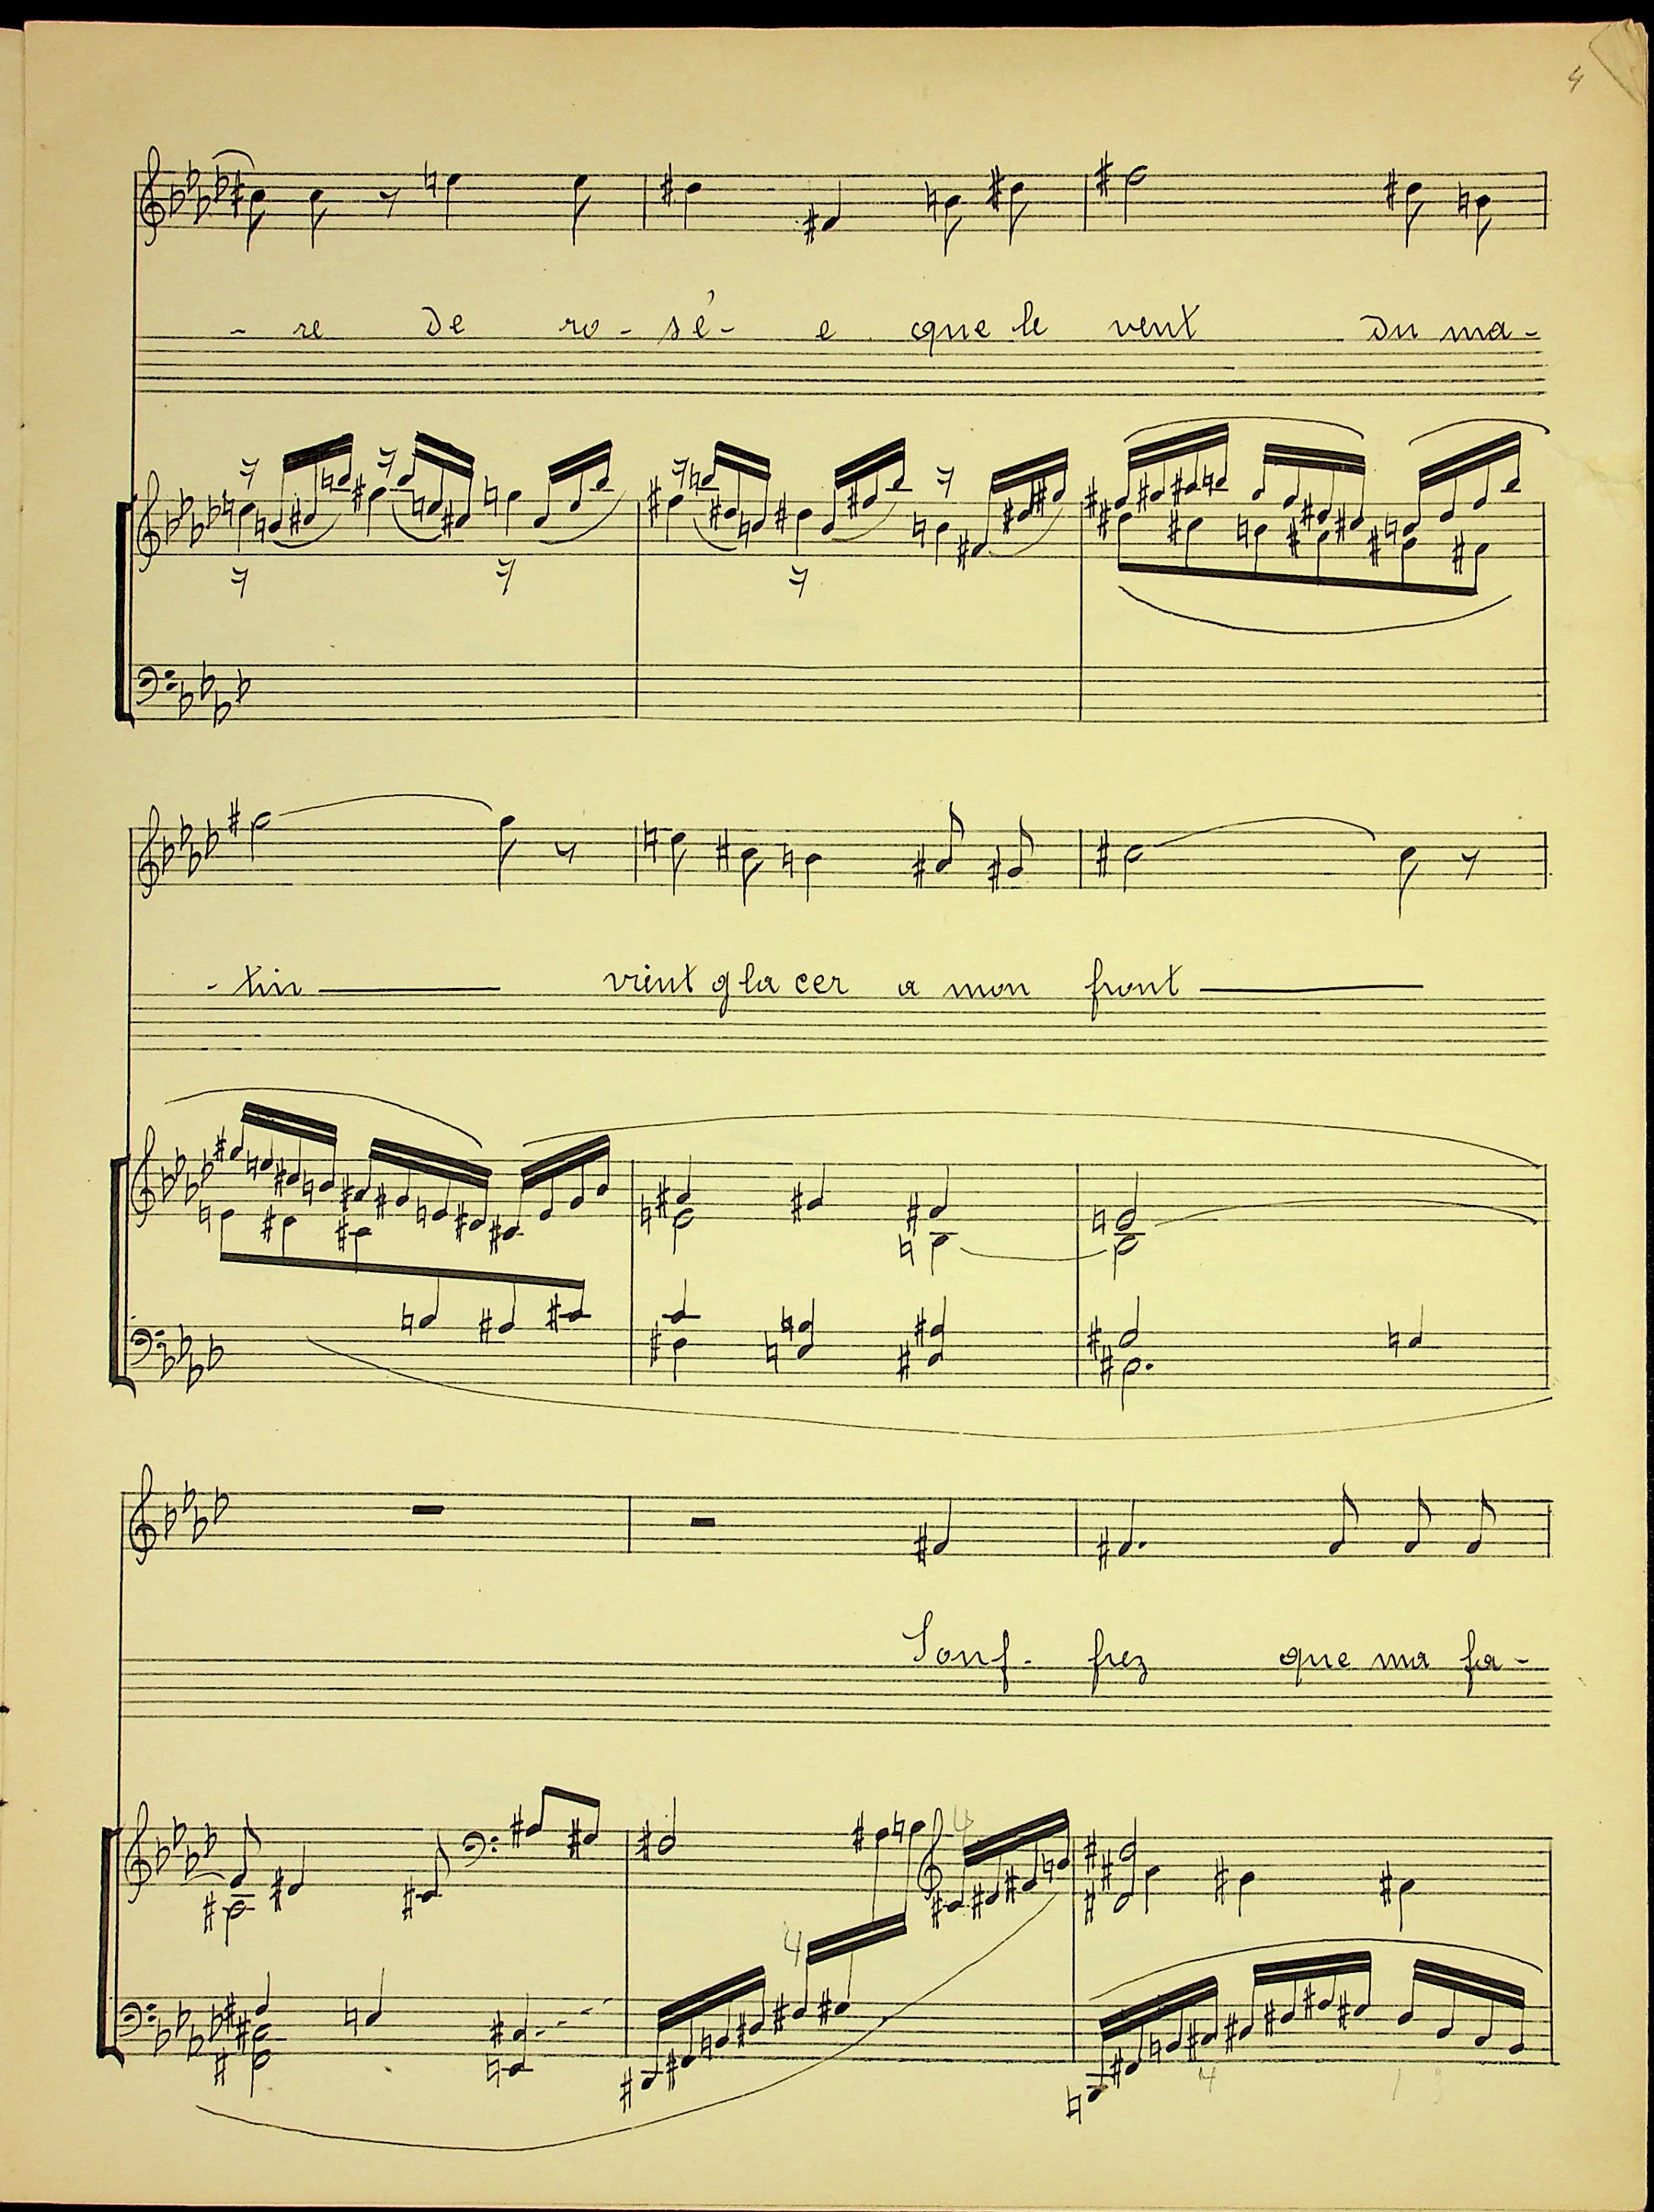 4
- re De ro - sé - e que le vent Du ma -
- tin vient gla cer a mon front
Souf - frez que ma fa -
4
4
4